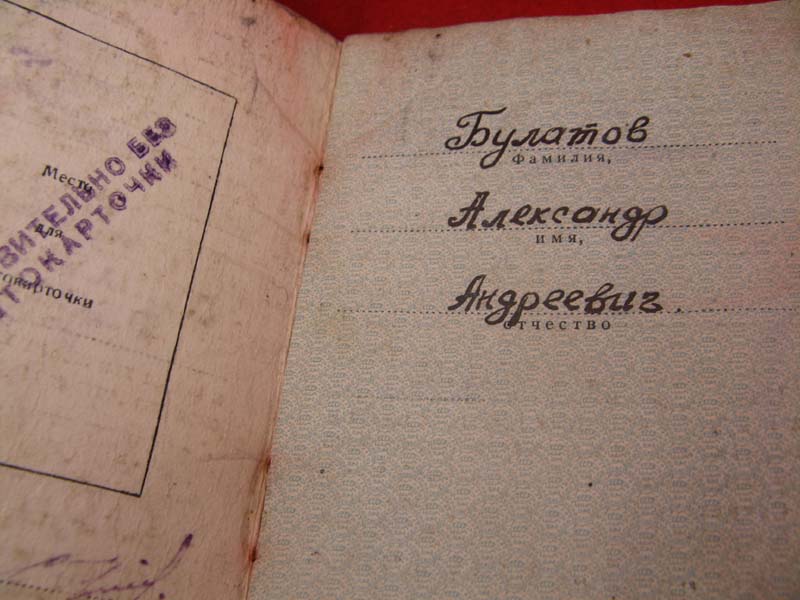 Место
для
ВИТЕЛЬНО БЕЗ
ТОКАРТОЧКИ
токарточки
Булатов
Фамилия,
Александр
имя,
Андреевич.
отчество